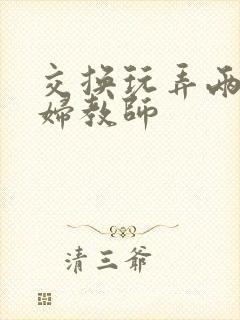 交换玩弄两
婦教師
清三爷